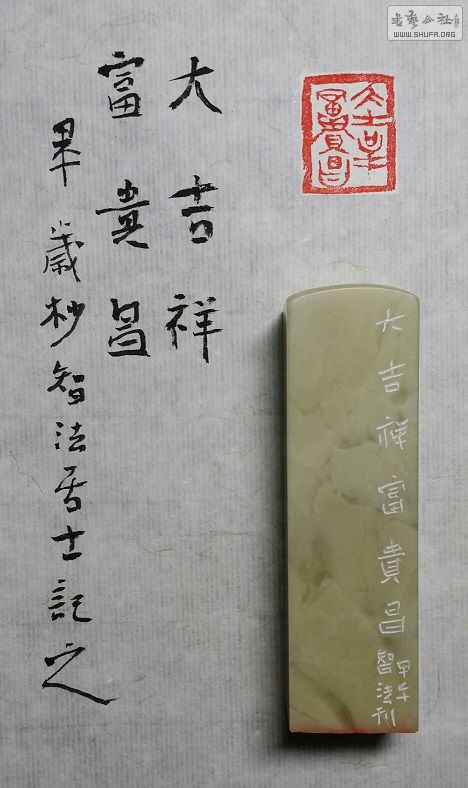 書藝公社
WWW.SHUFA.ORG
大吉祥
富貴昌
甲午歲杪智法居士記之
大吉羊
富貴昌
大吉祥富貴昌
甲午
智法刻